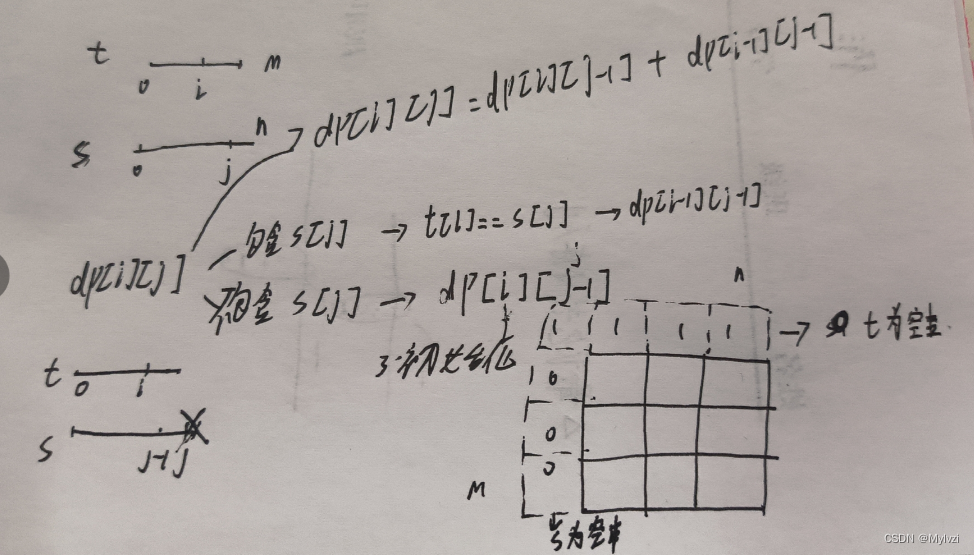 t 0 i m
s 0 j n
dp[i][j] = dp[i][j-1] + dp[i-1][j-1]
dp[i][j]
包含 s[j] → t[i]==s[j] → dp[i-1][j-1]
不包含 s[j] → dp[i][j-1]
j
n
3.初始化
1 1 1 1 → t为空串
t 0 i
s j-1 j
1 0
0
0
m
s为空串
CSDN @Mylvzi